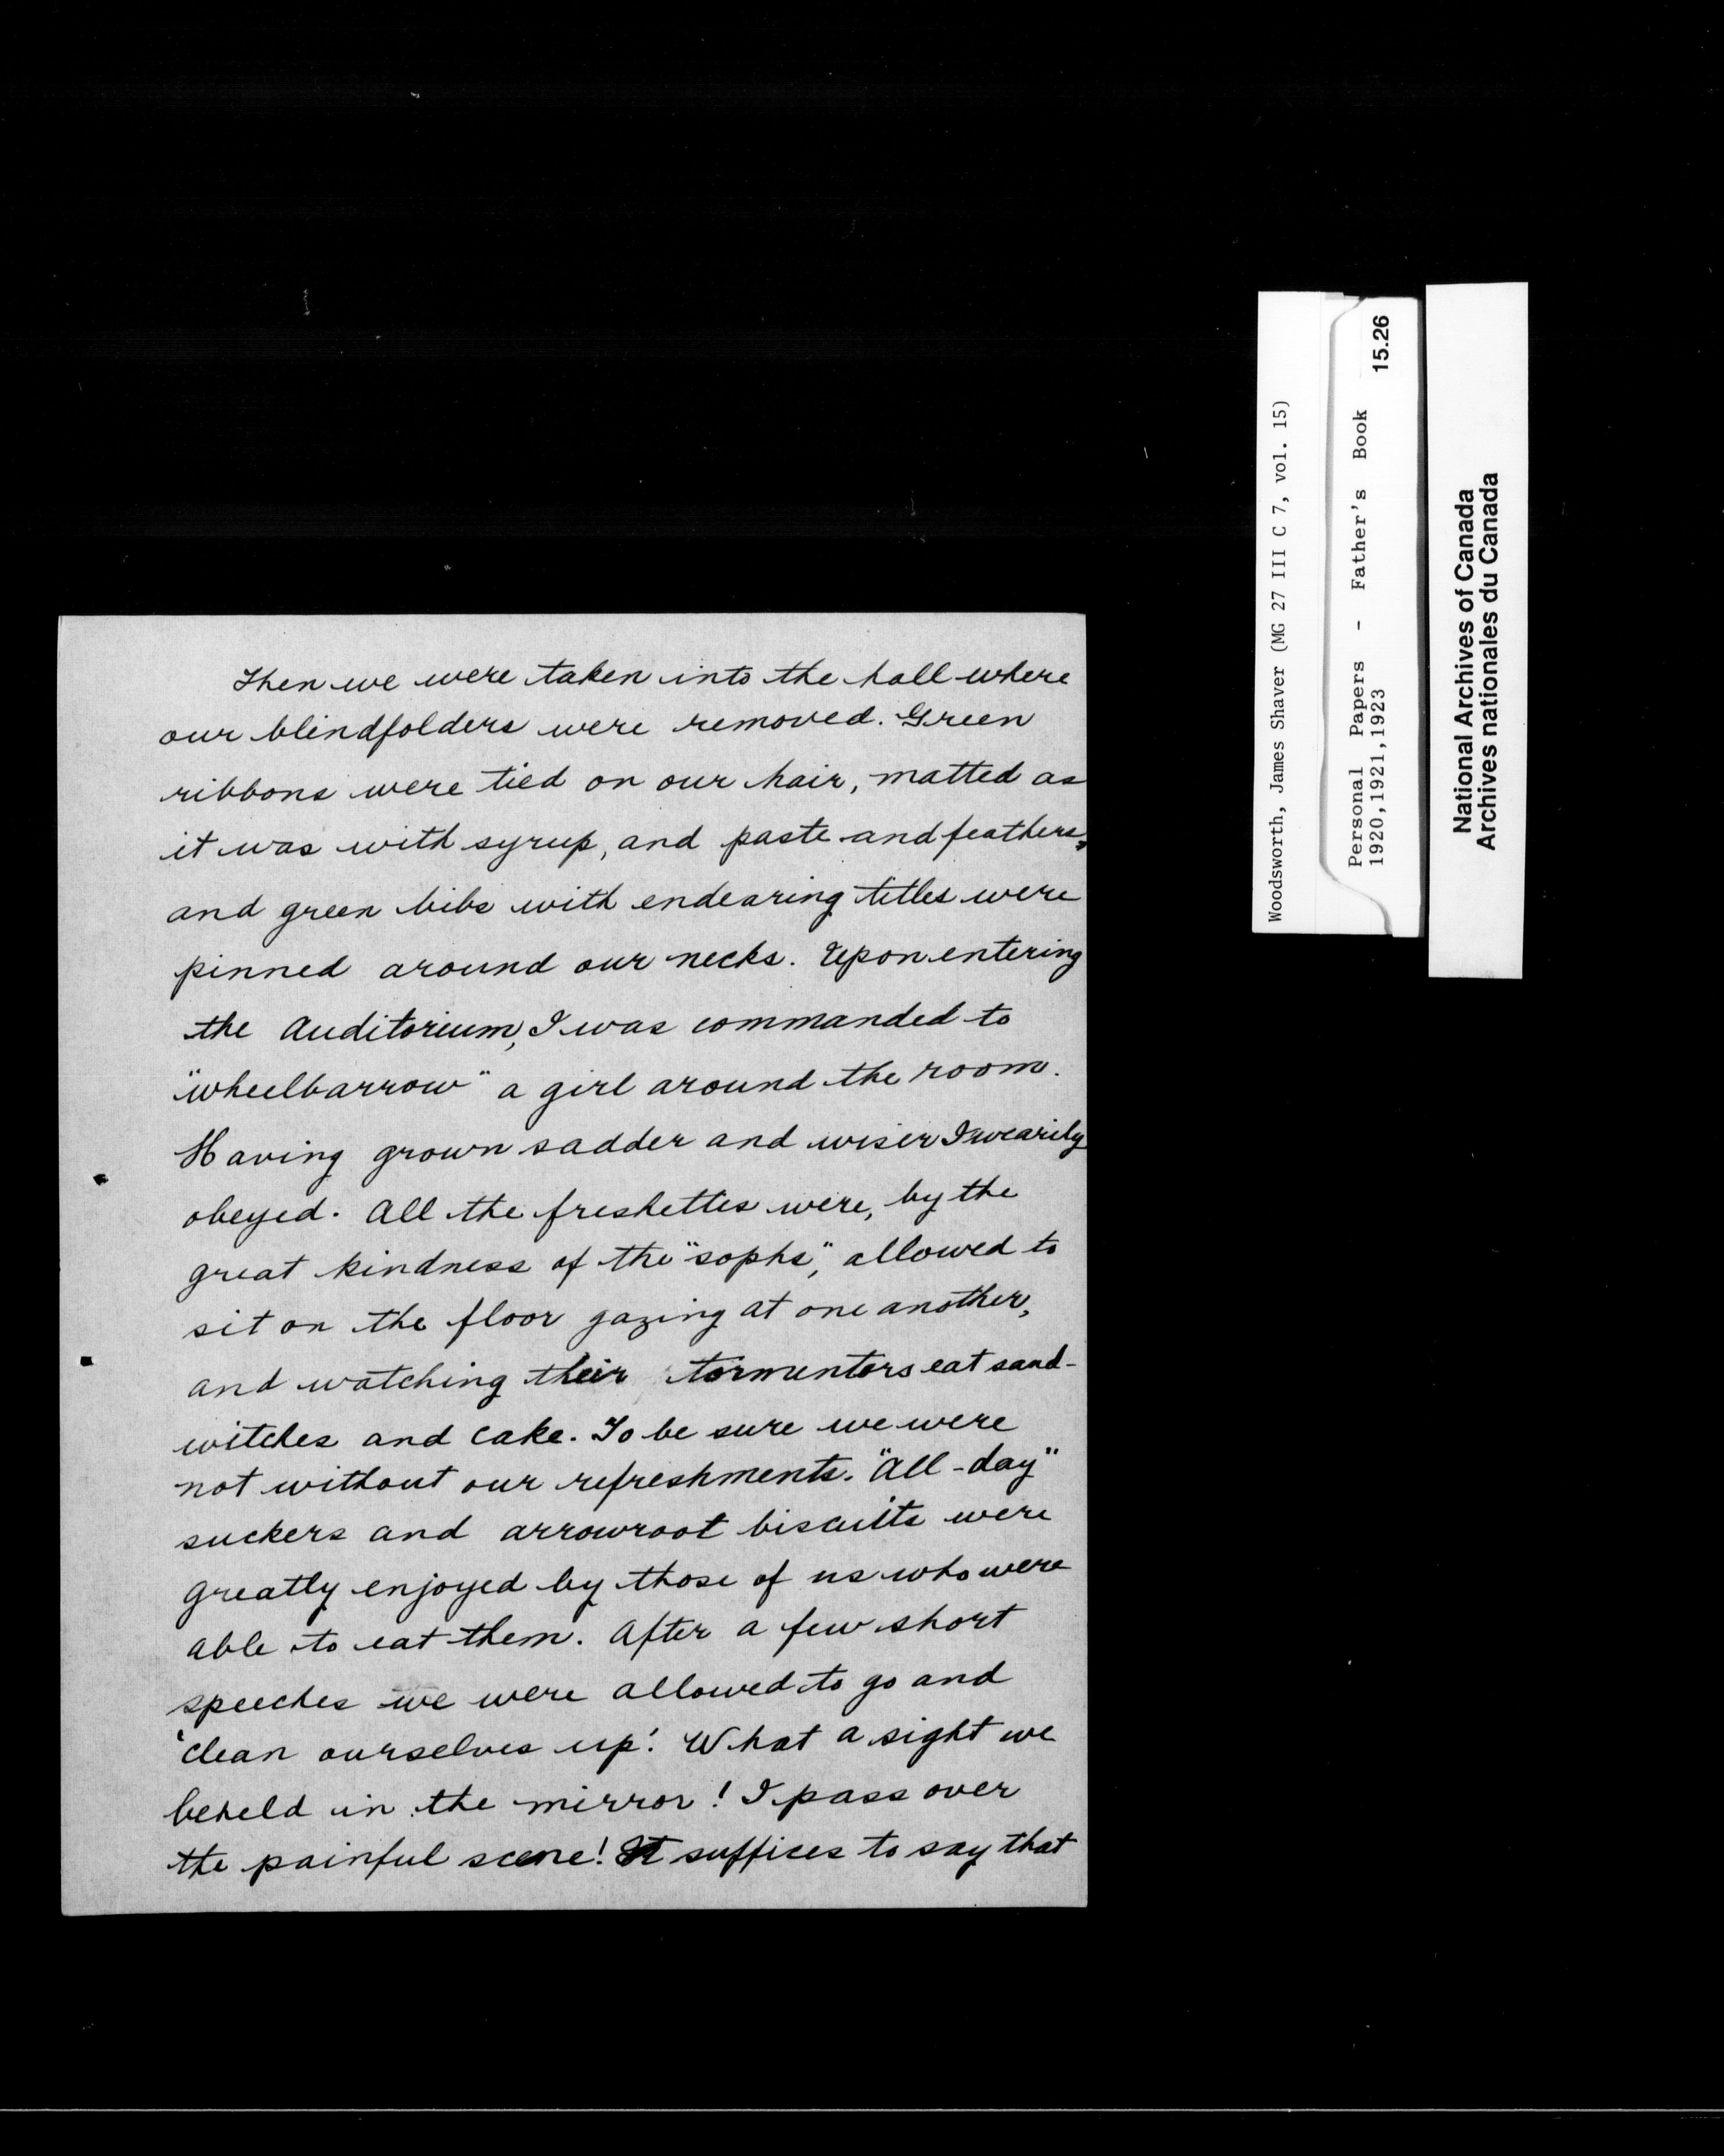 Then we were taken into the hall where
our blindfolders were removed. Green
ribbons were tied on our hair, matted as
it was with syrup, and paste and feathers,
and green bibs with endearing titles were
pinned around our necks. Upon entering
the Auditorium, I was commanded to
"wheelbarrow" a girl around the room.
Having grown sadder and wiser I wearily
obeyed. All the freshettes were, by the
great kindness of the "sophs", allowed to
sit on the floor gazing at one another,
and watching their tormentors eat sand-
witches and cake. To be sure we were
not without our refreshments. "All-day"
suckers and arrowroot biscuits were
greatly enjoyed by those of us who were
able to eat them. After a few short
speeches we were allowed to go and
'clean ourselves up'. What a sight we
beheld in the mirror! I pass over
the painful scene! It suffices to say that
Woodsworth, James Shaver (MG 27 III C 7, vol. 15)
Personal Papers - Father's Book 15.26
1920,1921,1923
National Archives of Canada
Archives nationales du Canada